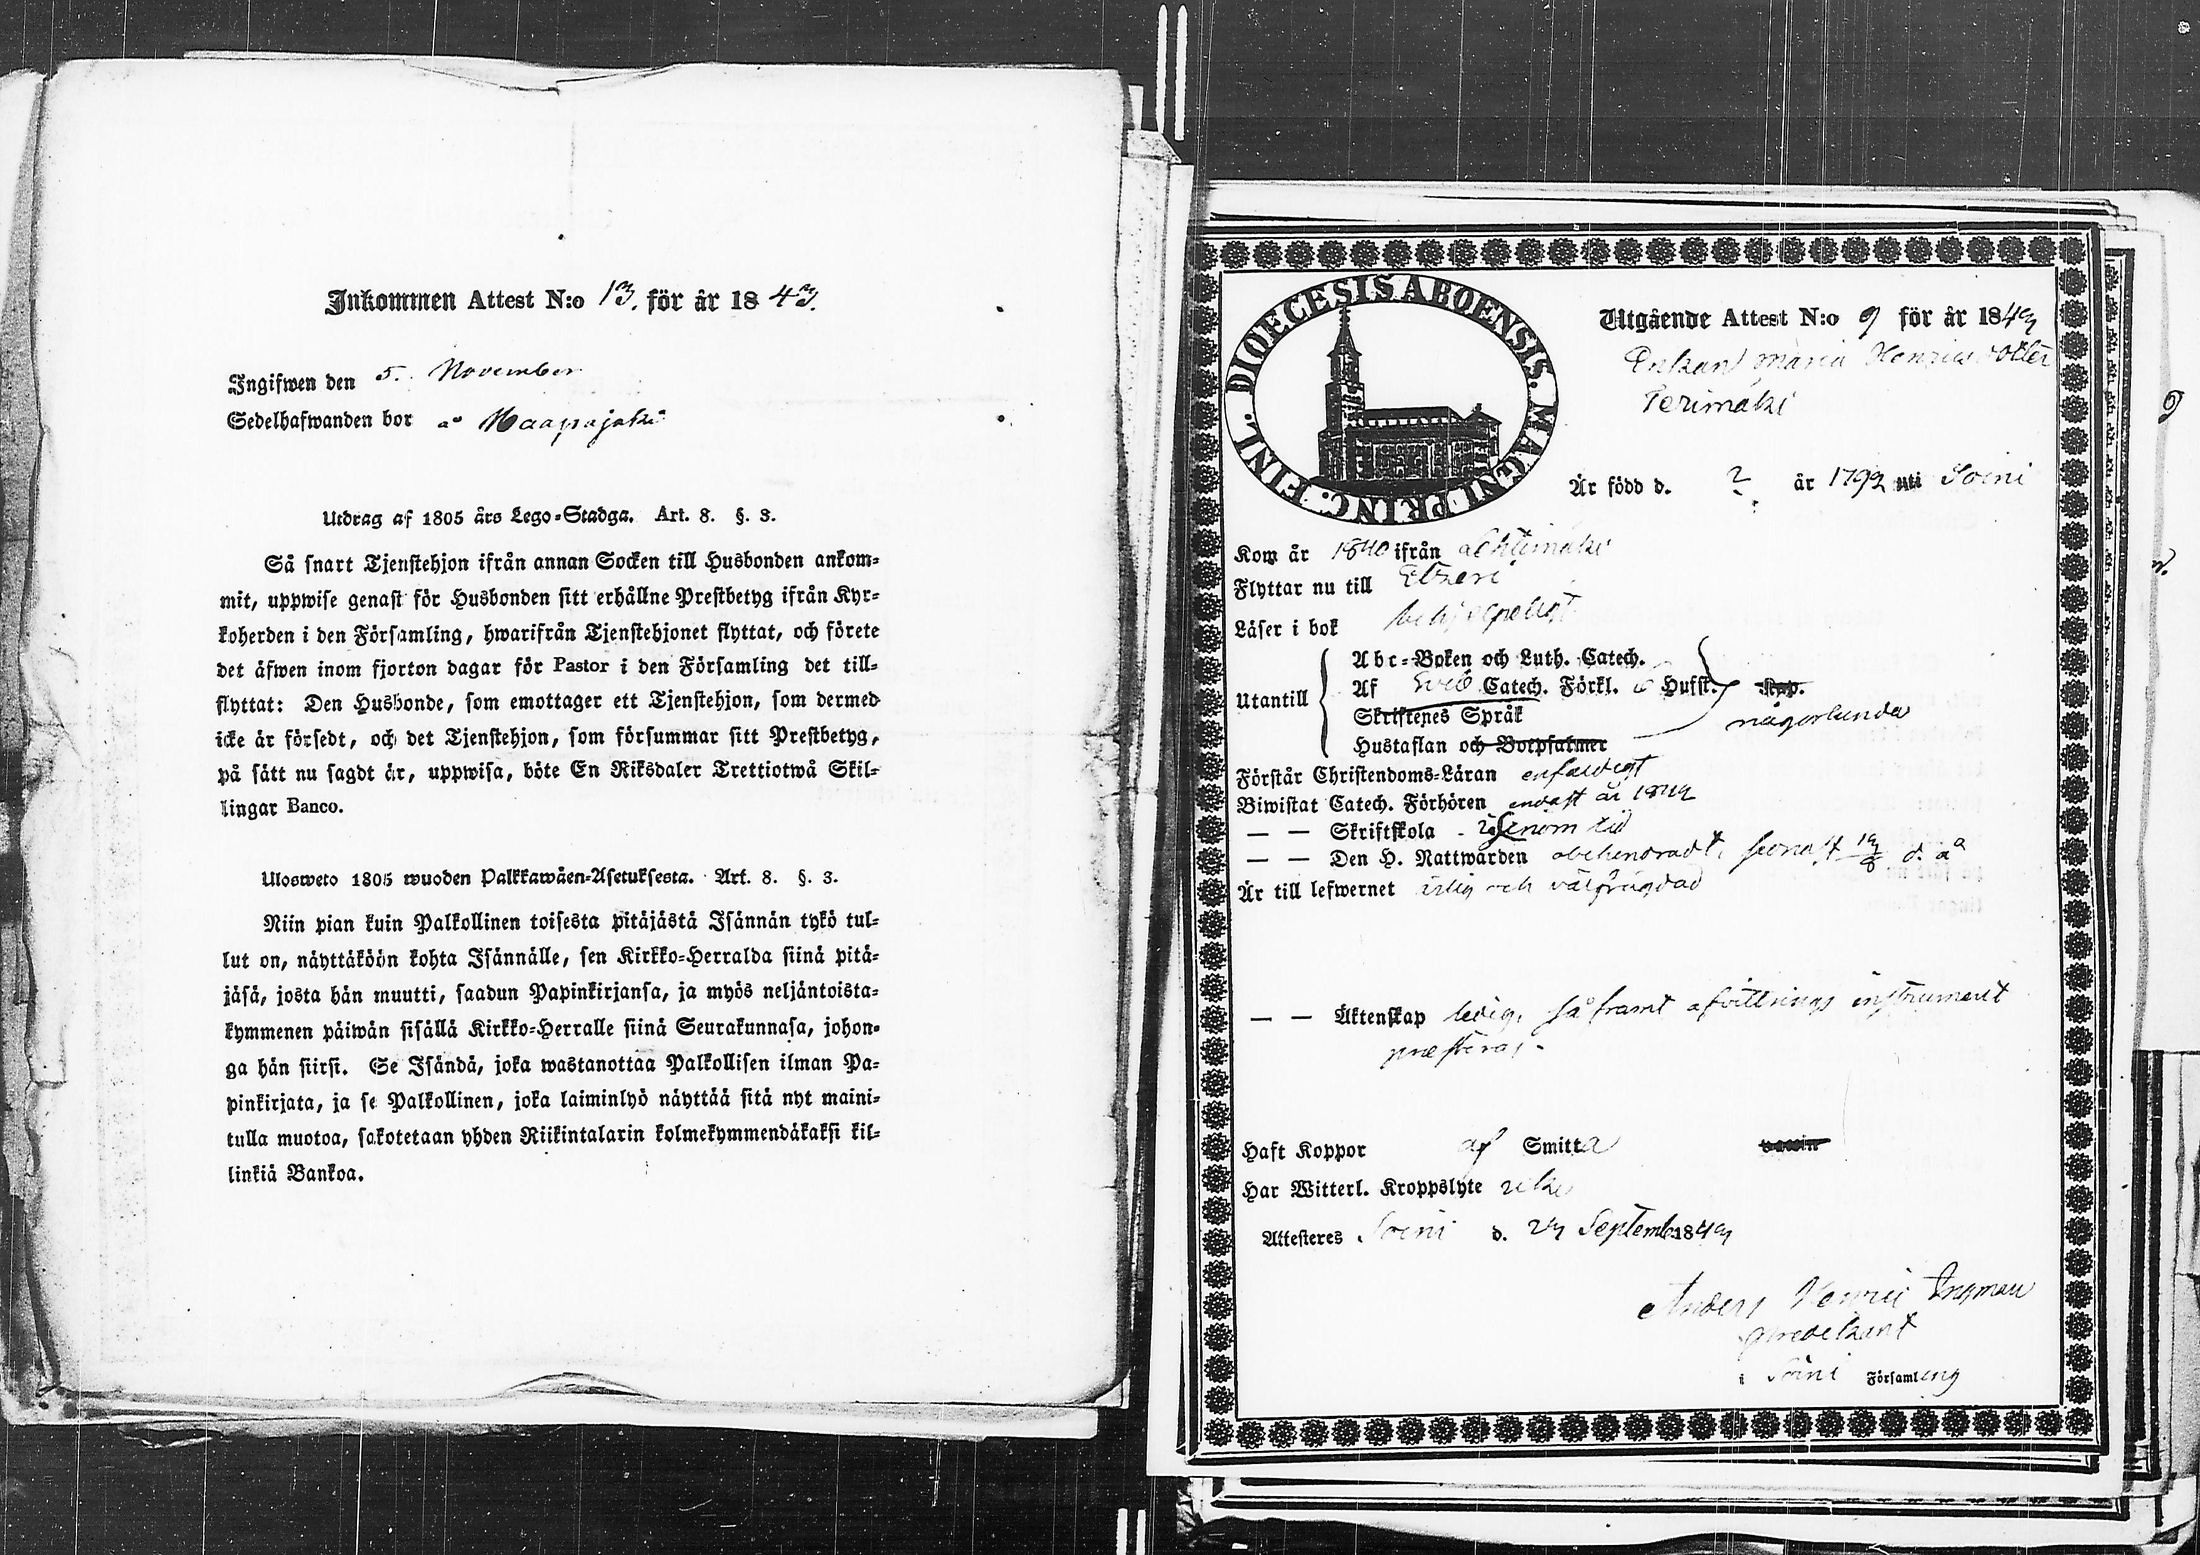 Inkommen Attest N:o 13. för år 1843.
Ingifwen den 5. November
Sedelhafwanden bor å Haapajoki
Utdrag af 1805 års Lego-Stadga. Art. 8. §. 3.
Så snart Tjenstehjon ifrån annan Socken till Husbonden ankom-
mit, uppwise genast för Husbonden sitt erhållne Prestbetyg ifrån Kyr-
koherden i den Församling, hwarifrån Tjenstehjonet flyttat, och förete
det äfwen inom fjorton dagar för Pastor i den Församling det till-
flyttat: Den Husbonde, som emottager ett Tjenstehjon, som dermed
icke är försedt, och det Tjenstehjon, som försummar sitt Prestbetyg,
på sätt nu sagdt är, uppwisa, böte En Riksdaler Trettiotwå Skil-
lingar Banco.
Ulosweto 1805 wuoden Palkkawäen-Asetuksesta. Art. 8. §. 3.
Niin pian kuin Palkollinen toisesta pitäjästä Isännän tykö tul-
lut on, näyttäköön kohta Isännälle, sen Kirkko-Herralda siinä pitä-
jäsä, josta hän muutti, saadun Papinkirjansa, ja myös neljäntoista-
kymmenen päiwän sisällä Kirkko-Herralle siinä Seurakunnasa, johon-
ga hän siirsi. Se Isändä, joka wastanottaa Palkollisen ilman Pa-
pinkirjata, ja se Palkollinen, joka laiminlyö näyttää sitä nyt maini-
tulla muotoa, sakotetaan yhden Riikintalarin kolmekymmendäkaksi kil-
linkiä Bankoa.
DIOECESIS ABOENSIS. MAGNI PRINC. FINL.
Utgående Attest N:o 9 för år 1843
Enkan Maria Henricsdotter
Perimäki
Är född d. ? år 1792 uti Soini
Kom år 1840 ifrån Lehtimäki
Flyttar nu till Etseri
Läser i bok behjelpeligt
Utantill
Abc-Boken och Luth. Catech.
Af Sveb. Catech. Förkl. o Hufst. Kap.
Skriftenes Språk
någorlunda
Hustaflan och Botpsalmer
Förstår Christendoms-Läran enfaldigt
Biwistat Catech. Förhören endast år 1842
— — Skriftskola i sinom tid
— — Den H. Nattwarden obehindradt, senast 13/8 d. å
Är till lefwernet ärlig och välfrägdad
— — Äktenskap ledig, så framt afvittrings instrument
presteras.
Haft Koppor af Smitta vaccin
Har Witterl. Kroppslyte icke
Attesteres Soini d. 23 Septemb. 1843
Anders Henric Ingman
predikant
i Soini Församling